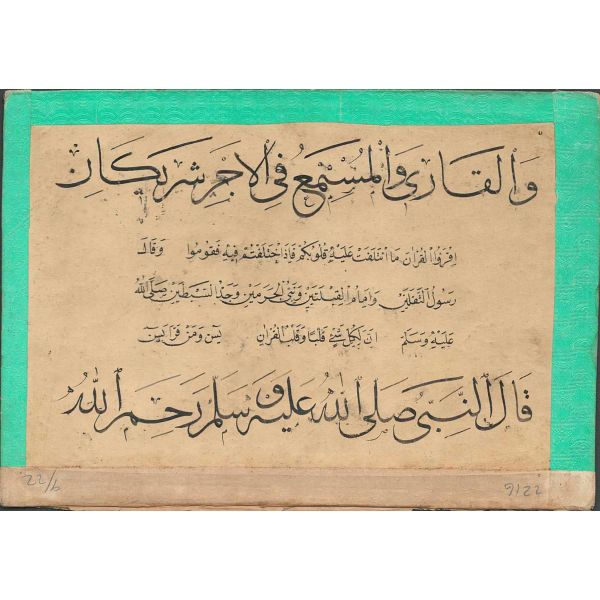 والقارئ والمستمع في الاجر شريكان
اقرؤا القران ما ائتلفت عليه قلوبكم فاذا اختلفتم فيه فقوموا وقال
رسول الثقلين وامام القبلتين ونبي الحرمين وجد السبطين صلى الله
عليه وسلم ان لكل شئ قلبا وقلب القران يس ومن قرا يس
قال النبي صلى الله عليه وسلم رحم الله
22/6
9122